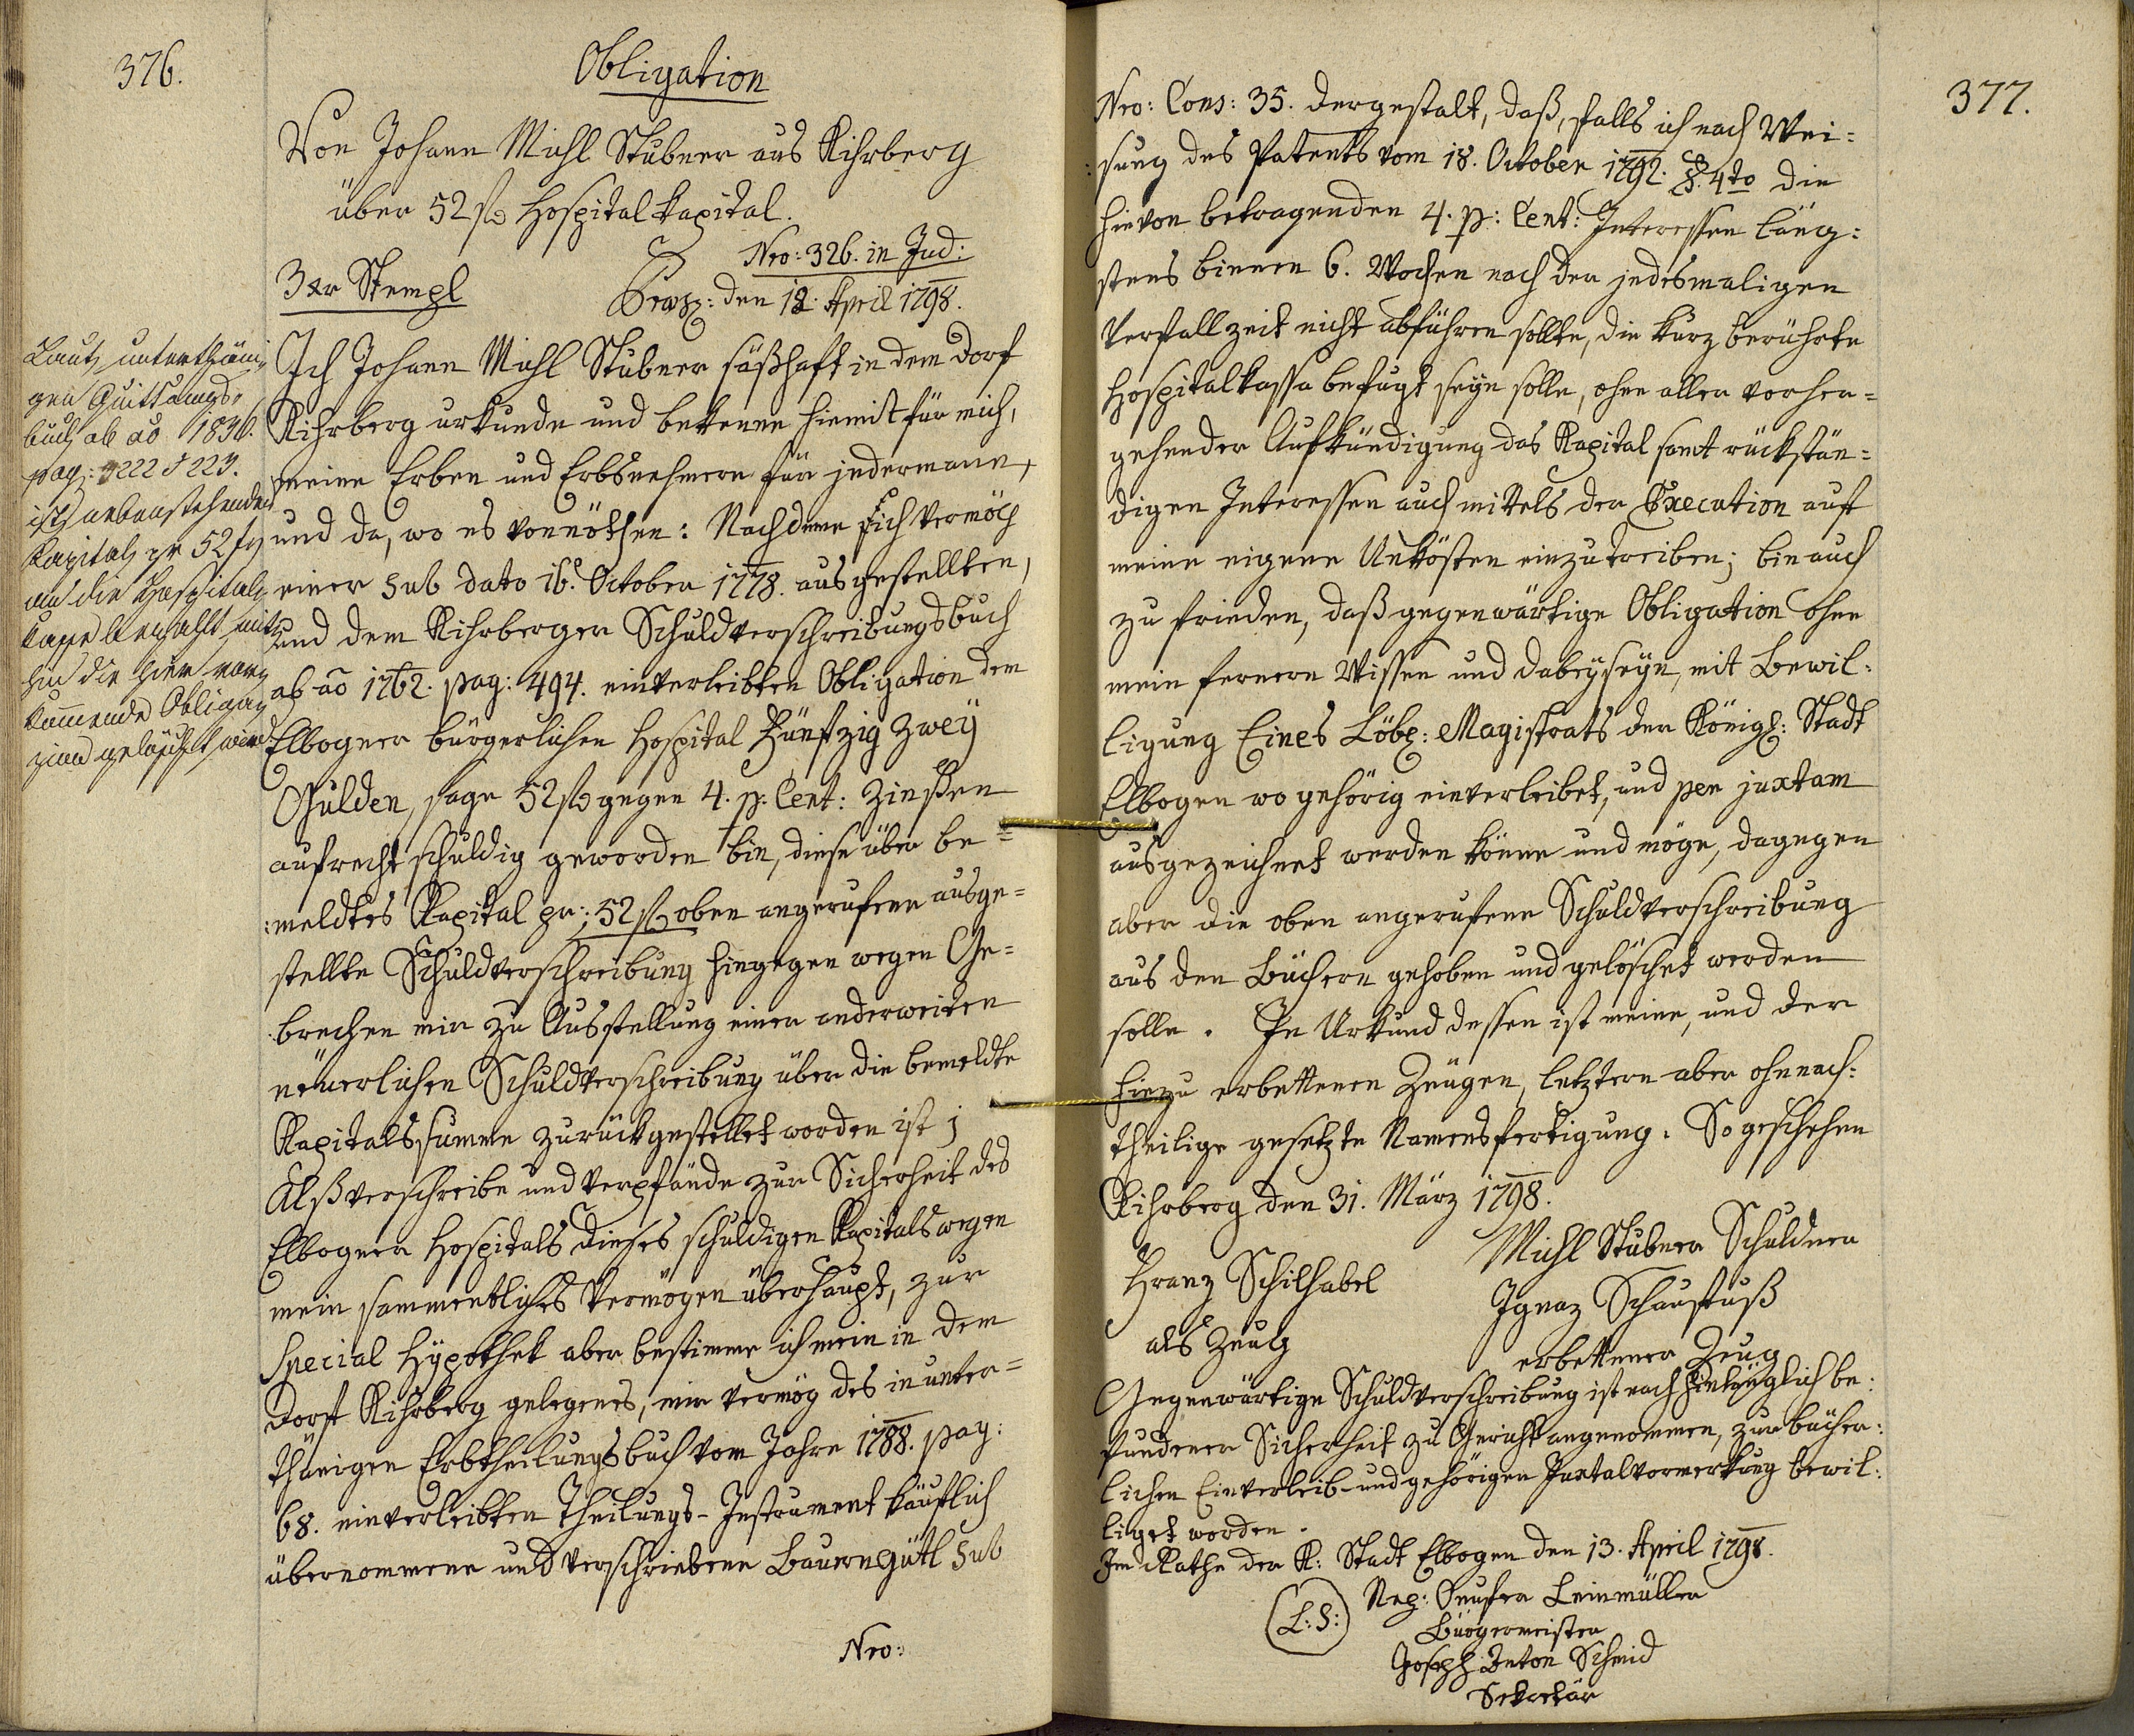 376.
Obligation
Von Johann Michl Stübner aus Kihrberg
über 52 f Hospitalkapital.
Nro: 326. in Jud:
3 xr Stempl
Praes: den 12. April 1798.
Ich Johann Michl Stübner säßhaft in dem Dorf
Kihrberg urkunde und bekenne hiemit für mich,
meine Erben und Erbsnehmern für jedermann,
und da, wo es vonnöthen: Nachdeme ich vermög
einer sub dato 16. October 1778. ausgestellten,
und dem Kihrberger Schuldverschreibungsbuch
ab ao 1762. pag: 494. einverleibten Obligation dem
Elbogner bürgerlichen Hospital Fünfzig zweÿ
Gulden, sage 52 f gegen 4. p: Cent: Zinßen
aufrecht schuldig geworden bin, diese über be=
meldtes Kapital pr: 52 f oben angerufene ausge=
stellte Schuldverschreibung hingegen wegen Ge=
brechen mir zu Ausstellung einer anderweiten
neuerlichen Schuldverschreibung über die bemeldte
Kapitalssumme zurückgestellet worden ist;
Alß verschreibe und verpfände zur Sicherheit des
Elbogner Hospitals dieses schuldigen Kapitals wegen
mein sammentliches Vermögen überhaupt, zur
Special Hÿpothek aber bestimme ich mein in dem
Dorff Kihrberg gelegenes, mir vermög des in unter=
thänigen Erbtheilungsbuch vom Jahre 1788. pag:
68. einverleibten Theilungs-Instrument käuflich
übernommene und verschriebene Bauerngütl sub
Nro:
Laut unterthäni
gen Quittungs-
buch ab ao 1836.
pag: 222 & 223.
ist nebenstehendes
Kapital pr 52 f
an die Hospital
Kasse bezahlt, mit
hin die hier vor
kommende Obliga
zion gelöscht wird
377.
Nro: Cons: 35. dergestalt, daß, falls ich nach Wei=
sung des Patents vom 18. October 1792. §. 4to die
hievon betragenden 4. p: Cent: Interessen läng=
stens binnen 6. Wochen nach der jedesmaligen
Verfallzeit nicht abführen sollte, die kurz berührte
Hospitalkassa befugt seÿn solle, ohne aller vorher=
gehender Aufkündigung das Kapital samt rückstän=
digen Interessen auch mittels der Execution auf
meine eigene Unkösten einzutreiben; bin auch
zu frieden, daß gegenwärtige Obligation ohne
mein ferneren Wissen und Dabeÿseÿn, mit Bewil=
ligung Eines Löbl: Magistrats der Königl: Stadt
Elbogen wo gehörig einverleibet, und per juxtam
ausgezeichnet werden könne und möge, dagegen
aber die oben angerufene Schuldverschreibung
aus den Büchern gehoben und gelöschet werden
solle. In Urkund dessen ist meine, und der
hiezu erbettenen Zeugen, letztern aber ohnnach=
theilige gesetzte Namensfertigung. So geschehen
Kihrberg den 31. März 1798.
Michl Stübner Schuldner
Franz Schilhabel
als Zeug
Ignaz Schaufuß
erbettener Zeug
Gegenwärtige Schuldverschreibung ist nach hinlänglich be=
fundener Sicherheit zu Gericht angenommen, zur bücher=
lichen Einverleib- und gehörigen Juxtalvormerkung bewil=
liget worden.
Im Rathe der K: Stadt Elbogen den 13. April 1798.
(L: S:)
Nep: Leinmüller
Bürgermeister
Joseph Anton Schmid
Sekretär